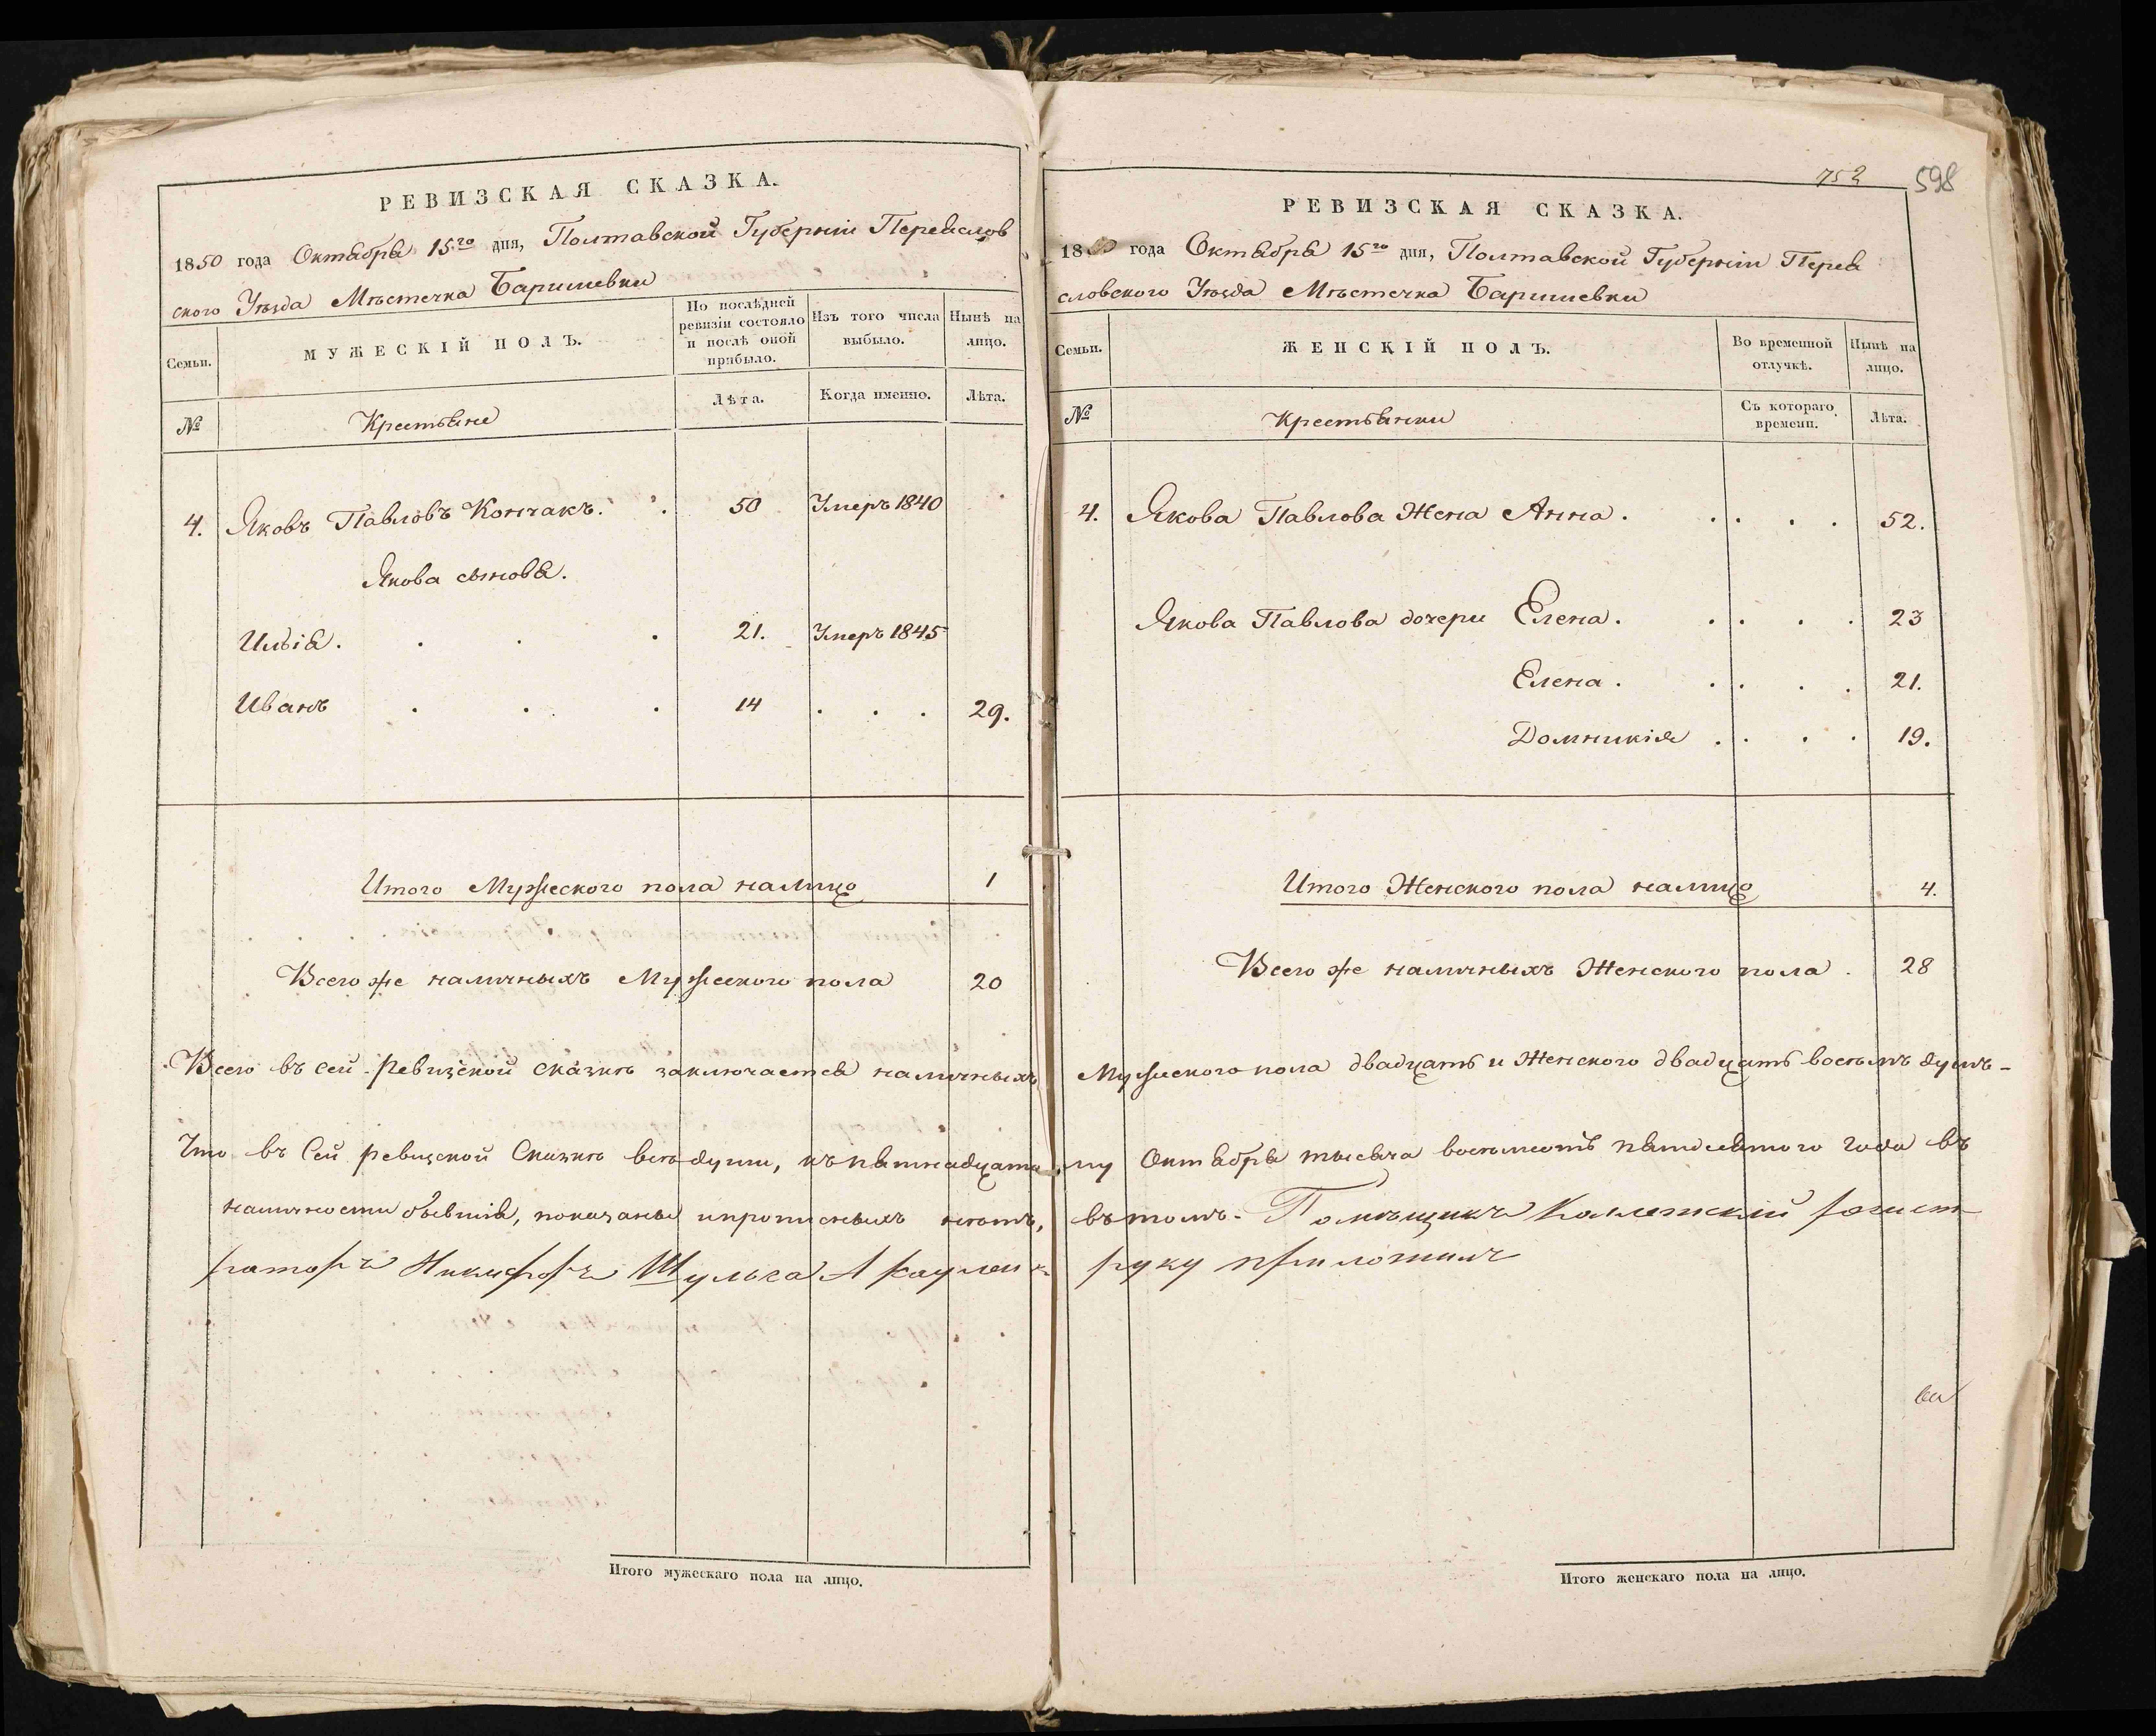 РЕВИЗСКАЯ СКАЗКА.
1850 года Октября 15го дня, Полтавской Губерніи Переяслов
ского Уѣзда Мѣстечка Баришевки
Семьи.
МУЖЕСКІЙ ПОЛЪ.
По послѣдней ревизіи состояло и послѣ оной прибыло.
Изъ того числа выбыло.
Нынѣ на лицо.
Лѣта.
Когда именно.
Лѣта.
№
Крестьяне
4. Яковъ Павловъ Кончакъ. 50 Умеръ 1840
Якова сыновья.
Илья. 21. Умеръ 1845
Иванъ 14 29.
Итого Мужеского пола налицо 1
Всего же наличныхъ Мужеского пола 20
Всего въ сей Ревизской сказкѣ заключается наличныхъ
Что въ Сей ревизской Сказкѣ всѣ души, къ пятнадцато
наличности бывшія, показаны и прописныхъ нѣтъ,
раторъ Никифоръ Шульга
Итого мужескаго пола на лицо.
752 598
РЕВИЗСКАЯ СКАЗКА.
1850 года Октября 15го дня, Полтавской Губерніи Перея
словского Уѣзда Мѣстечка Баришевки
Семьи.
ЖЕНСКІЙ ПОЛЪ.
Во временной отлучкѣ.
Нынѣ на лицо.
№
Крестьянки
Съ котораго времени.
Лѣта.
4. Якова Павлова Жена Анна. 52.
Якова Павлова дочери Елена. 23
Елена. 21.
Домникія 19.
Итого Женского пола налицо 4.
Всего же наличныхъ Женского пола. 28
Мужеского пола двадцать и Женского двадцать восемь душъ-
му Октября тысяча восемьсотъ пятдесятого года въ
въ томъ. Помѣщикъ Колежский регист
руку приложилъ
Итого женскаго пола на лицо.